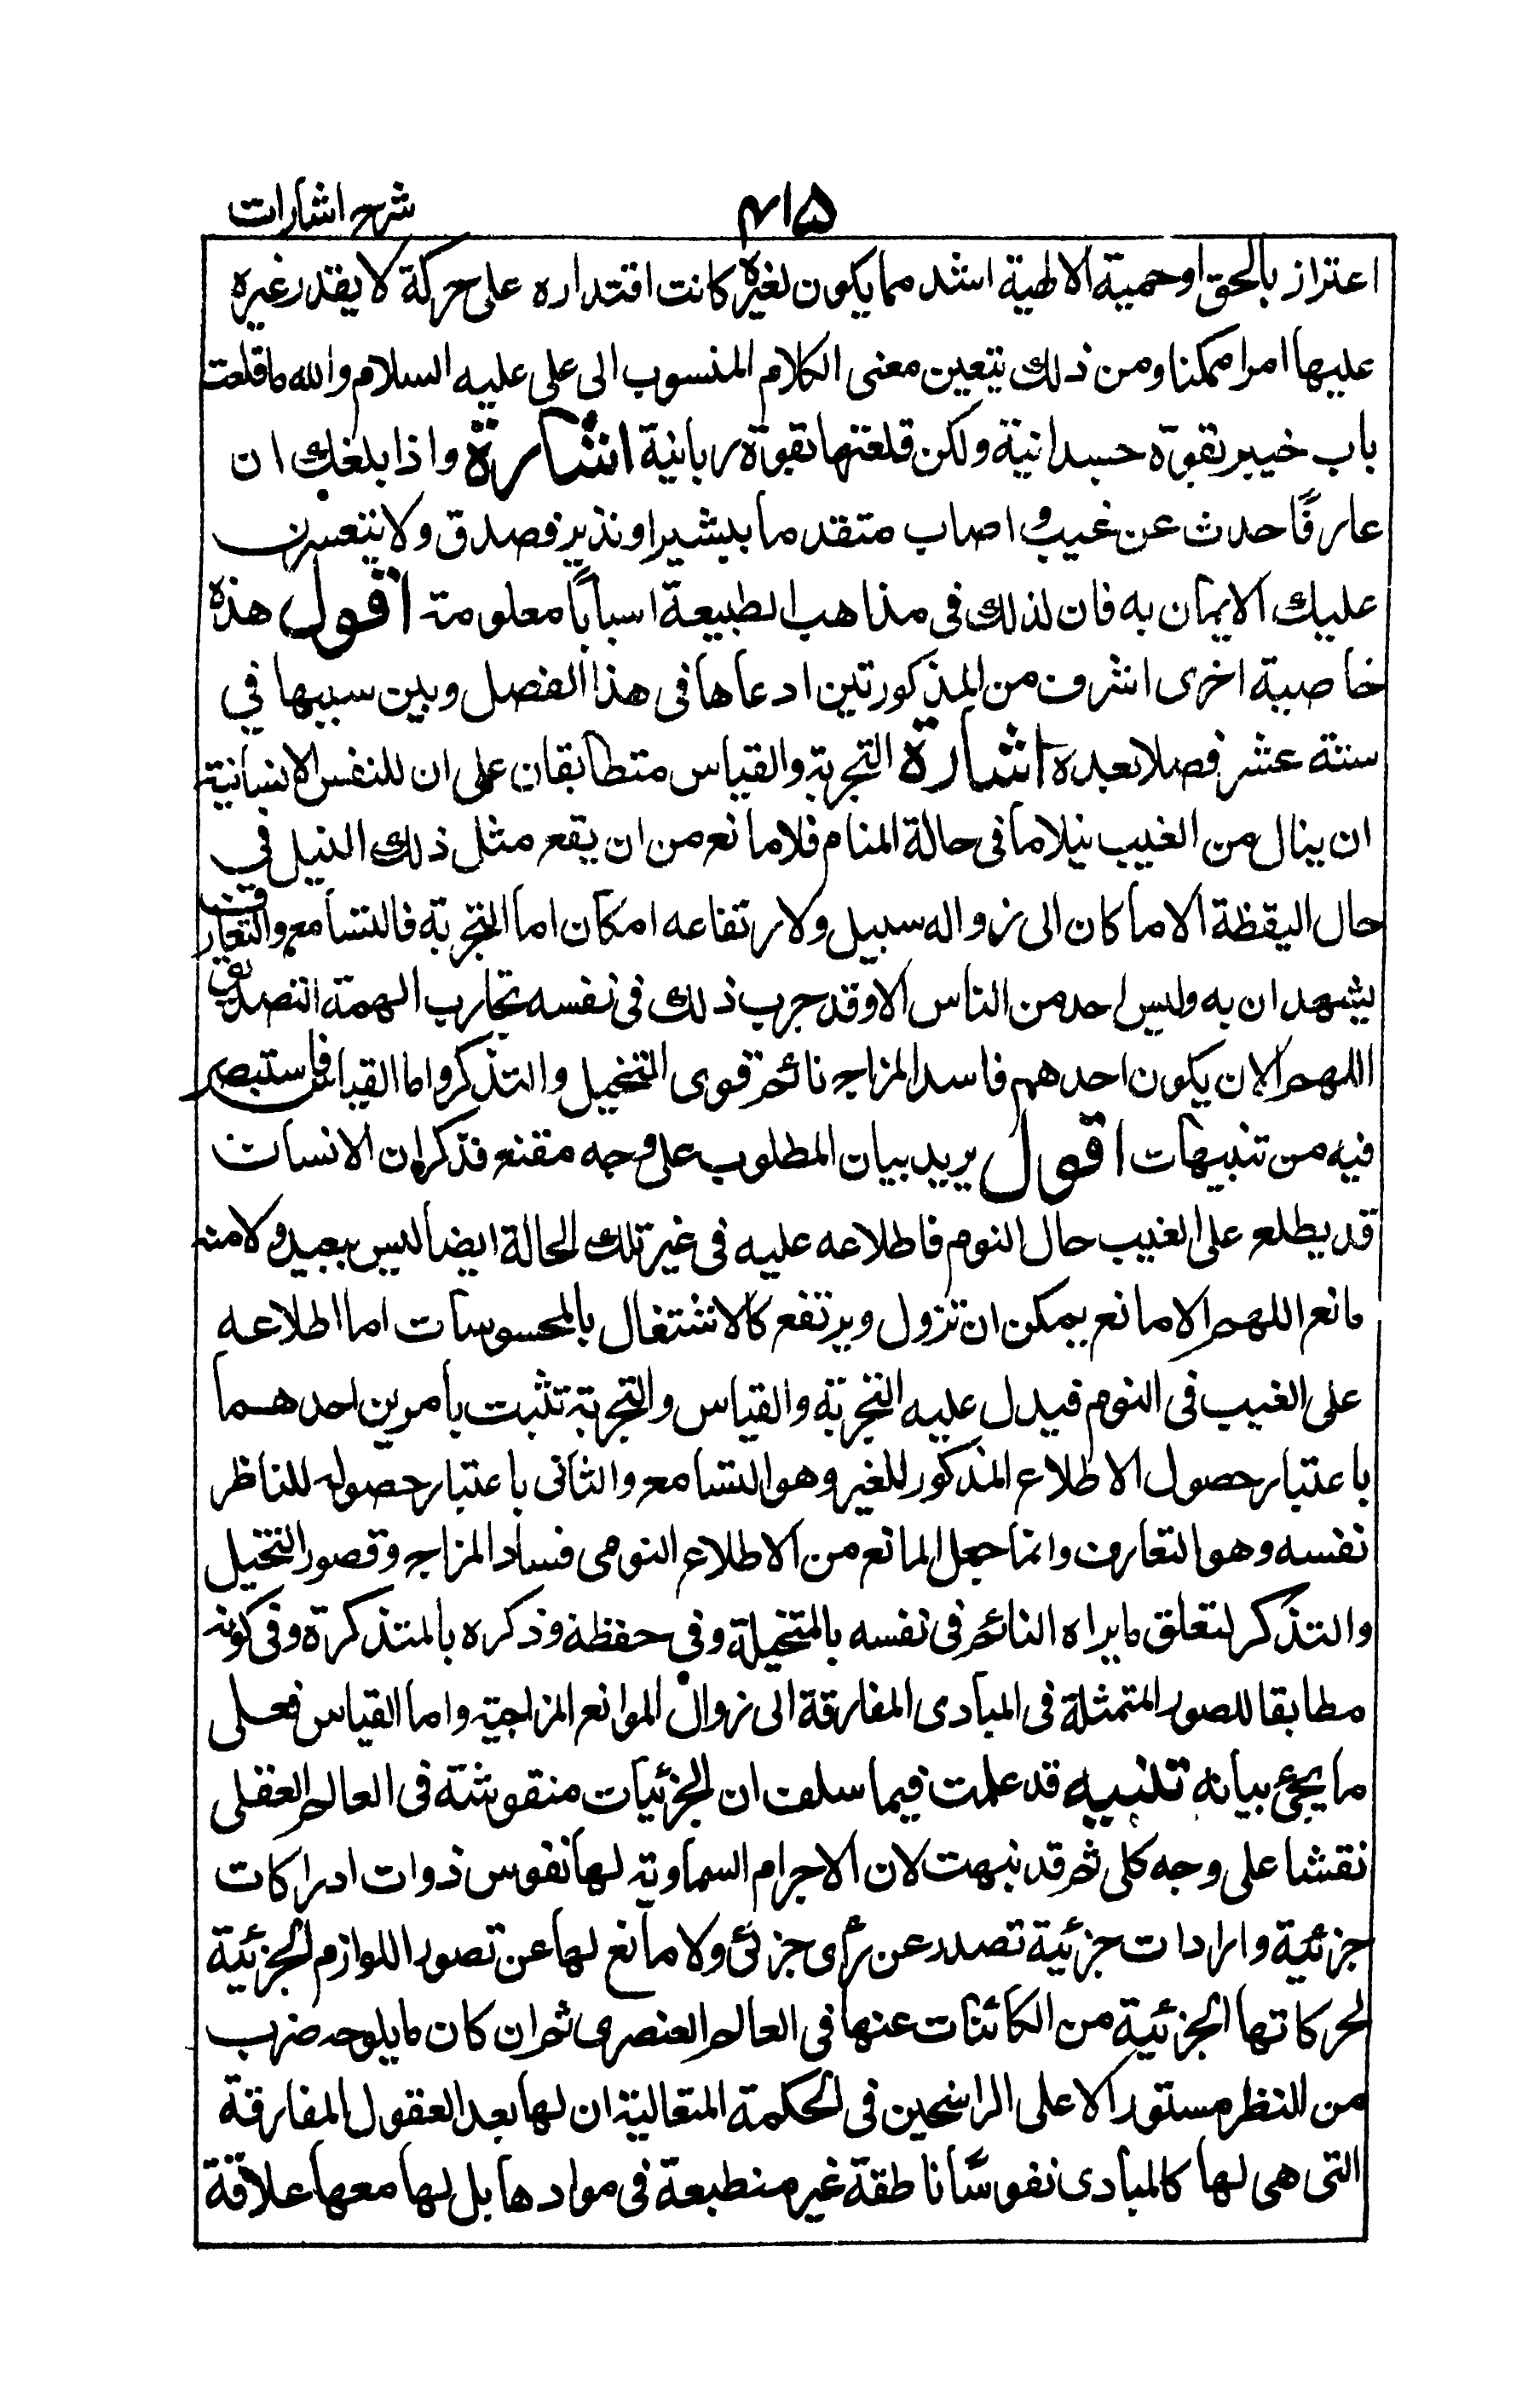 شرح اشارات
۴۱۵
اعتزاز بالحق او حمية الالهية اشد مما يكون لغيره كانت اقتداره على حركة لا يقدر غيره
عليها امرا ممكنا ومن ذلك يتعين معنى الكلام المنسوب الى على عليه السلام والله ما قلعت
باب خيبر بقوّة جسدانية ولكن قلعتها بقوة ربانية اشارة واذا بلغك ان
عارفًا حدث عن غيب و اصاب متقدما ببشير او نذير فصدق ولا يتعسرن
عليك الايمان به فان لذلك فى مذاهب الطبيعة اسبابًا معلومة اقول هذه
خاصية اخرى اشرف من المذكورتين ادعاها فى هذا الفصل وبين سببها في
ستة عشر فصلا بعده اشارة التجربة والقياس متطابقان على ان للنفس الانسانية
ان ينال من الغيب نيلا ما فى حالة المنام فلا مانع من ان يقع مثل ذلك النيل في
حال اليقظة الا ما كان الى زواله سبيل ولارتفاعه امكان اما التجربة فالتسامع والتعارف
يشهدان به وليس احد من الناس الا وقد جرب ذلك فى نفسه تجارب الهمة التصديق
اللهم الا ان يكون احدهم فاسد المزاج نائم قوى التخيل والتذكر واما القياس فاستبصر
فيه من تنبيهات اقول يريد بيان المطلوب على وجه مقنع فذكر ان الانسان
قد يطلع على الغيب حال النوم فاطلاعه عليه فى غير تلك الحالة ايضا ليس ببعيد ولا منه
مانع اللهم الا مانع يمكن ان تزول ويرتفع كالاشتغال بالمحسوسات اما اطلاعه
على الغيب فى النوم فيدل عليه التجربة والقياس والتجربة تثبت بأمرين احدهما
باعتبار حصول الاطلاع المذكور للغير وهو التسامع والثانى باعتبار حصوله للناظر
نفسه وهو التعارف وانما جعل المانع من الاطلاع النومى فساد المزاج وقصور التخيل
والتذكر لتعلق ما يراه النائم فى نفسه بالمتخيلة وفي حفظه وذكره بالمتذكرة وفى كونه
مطابقا للصور المتمثلة فى المبادى المفارقة الى زوال الموانع المزاجية واما القياس فعلى
ما يجئ بيانه تنبيه قد علمت فيما سلف ان الجزئيات منقوشة فى العالم العقلى
نقشا على وجه كلى ثم قد نبهت لان الاجرام السماوية لها نفوس ذوات ادراكات
جزئية وارادات جزئية تصدر عن رأى جزئى ولا مانع لها عن تصور اللوازم الجزئية
لحركاتها الجزئية من الكائنات عنها فى العالم العنصرى ثم ان كان ما يلوحه ضرب
من النظر مستورا الا على الراسخين فى الحكمة المتعالية ان لها بعد العقول المفارقة
التى هى لها كالمبادى نفوسًا ناطقة غير منطبعة فى موادها بل لها معها علاقة